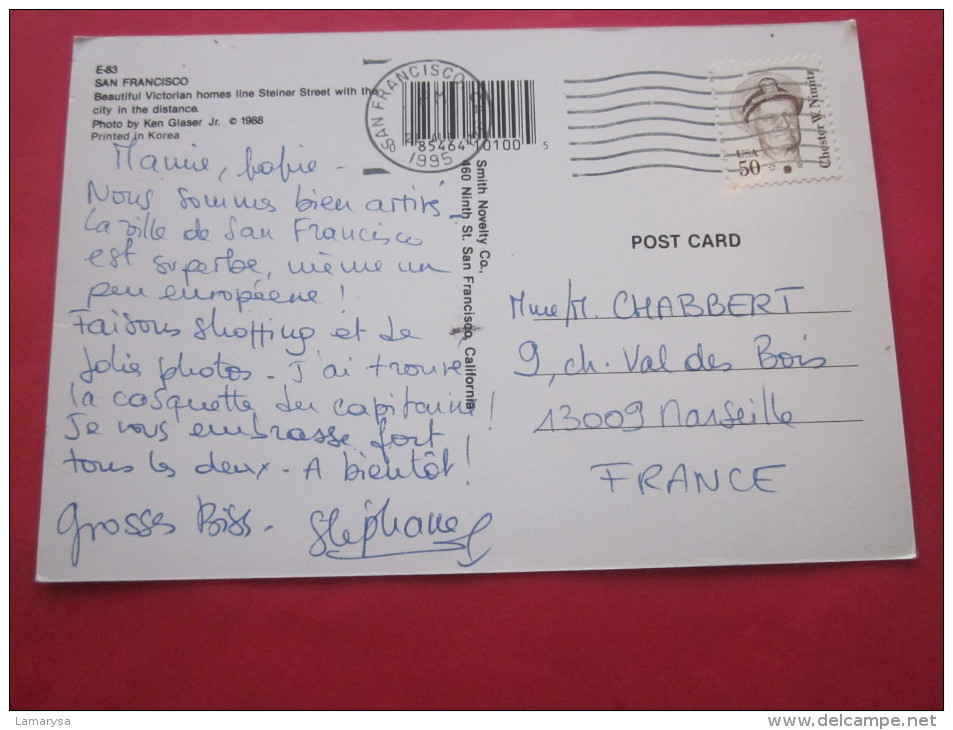 E-83
SAN FRANCISCO
Beautiful Victorian homes line Steiner Street with the
city in the distance.
Photo by Ken Glaser Jr. © 1988
Printed in Korea
Mamie, papie -
Nous sommes bien arrivés -
La ville de San Francisco
est superbe, même un
peu européene !
Faisons shopping et de
jolie photos - J'ai trouvé
la casquette du capitaine !
Je vous embrasse fort
tous les deux - A bientôt !
Grosses Biss - Stéphane
SAN FRANCISCO
1995
85464 10100 5
Smith Novelty Co.,
460 Ninth St. San Francisco, California
USA
50
Chester W. Nimitz
POST CARD
Mme/M. CHABBERT
9, ch. Val des Bois
13009 Marseille
FRANCE
Lamarysa
www.delcampe.net